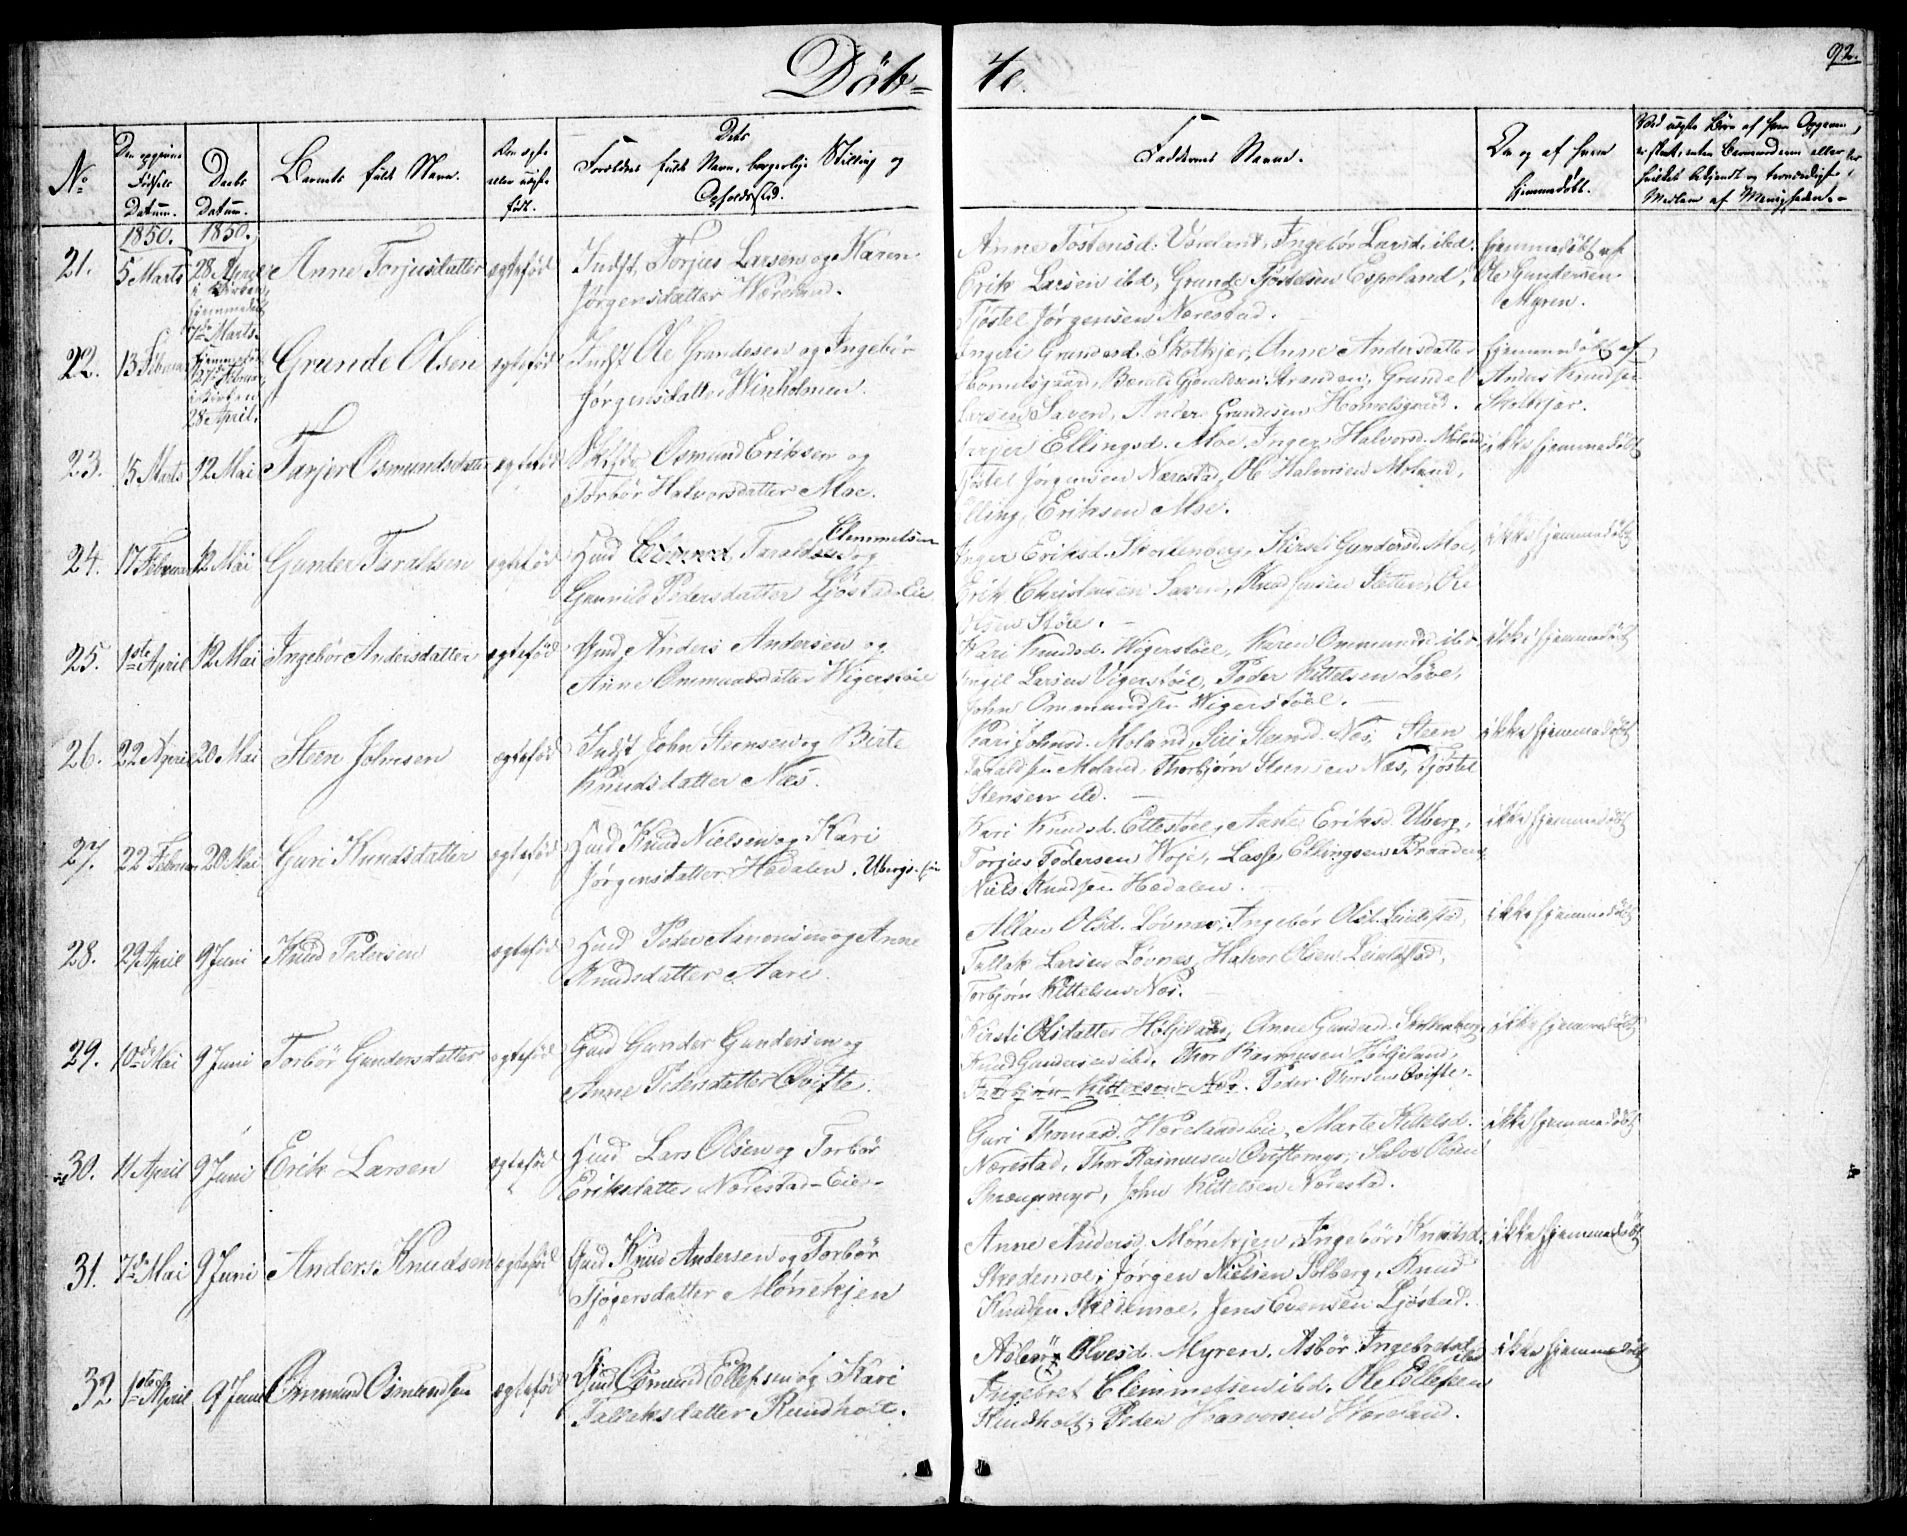 Döb=
te.
92.
No
Den opgivne
Fødsels
Datum.
Daabs
Datum.
Barnets fulde Navn.
Om ægte
eller uægte
født.
Dets
Forældres fulde Navn, borgerlige Stilling og
Opholdssted.
Faddernes Navne.
Om og af hvem
hjemmedøbt.
Medlem af Menigheden.
1850.
1850.
21.
5 Marts
28 April
i Kirken,
hjemmedøbt
7de Marts.
Anne Torjusdatter
ægtefød
Indst, Torjus Larsen og Karen
Jørgensdatter Wæreland.
Anne Tostensd. Ingebør Larsd. ibd.
Erik Larsen ibd, Grunde Tjøstelsen Espeland,
Tjøstel Jørgensen Nærestad.
hjemmedøbt af
Ole Gundersen
Myren.
22.
13 Februar
hjemmedøbt
27 Februar,
i Kirken
28 April.
Grunde Olsen
ægtefød
Indst Ole Grundesen og Ingebør
Jørgensdatter Winholmen.
Ingeri Grundesd. Skolkjær, Anne Andersdatter
Gjeraldsen Stranden, Grundel
Larsen Saven, Anders Grundesen Homelsgaard.
hjemmedøbt af
Anders Knudsen
Skolkjær.
23.
15 Marts
12 Mai
Tarjer Osmundsdatter
ægtefød
Osmund Eriksen og
Torbør Halvorsdatter Moe.
Tarjer Ellingsd. Moe, Inger Halvorsd. Moland
Tjøstel Jørgensen Nærestad, Ole Halvorsen Moland,
Elling Eriksen Moe.
ikke hjemmedøbt
24.
17 Februar
12 Mai
Gunder Taraldsen
ægtefød
Clemmetsen
Huusd Taraldsen og
Gunnild Pedersdatter Ljøstad-Eie
Inger Eriksd. Skollenberg, Kirsti Gundersd. Moe,
Erik Christensen Saven, Knud Jensen Sætten, Ole
Olsen Støle.
ikke hjemmedøbt
25.
1ste April
12 Mai
Ingebør Andersdatter
ægtefød
Gmd Anders Andersen og
Anne Ommundsdatter Wigerstøle
Kari Knudsd. Wigerstøel, Karen Ommundsd. ibd,
Engil Larsen Vigerstøel, Peder Kittelsen Løve,
John Ommundsen Wigerstøel.
ikke hjemmedøbt
26.
22 April
20 Mai
Steen Johnsen
ægtefød
Indst John Steensen og Birte
Knudsdatter Næs.
Kari Johnsd. Moland, Siri Steensd. Næs, Steen
Taraldsen Moland, Thorbjørn Steensen Næs, Tjøstel
Stensen ibd.
ikke hjemmedøbt
27.
22 Februar
20 Mai
Guri Knudsdatter
ægtefød
Huusd Knud Nielsen og Kari
Jørgensdatter Hædalen. Ubergs-Eie
Kari Knudsd. Ettestøel, Aase Eriksd. Uberg,
Torjus Pedersen Woje, Lasse Ellingsen Braaden,
Niels Knudsen Hædalen.
ikke hjemmedøbt
28.
29 April
9 Juni
Knud Pedersen
ægtefød
Huusd Peder Aanonsen og Anne
Knudsdatter Aare.
Olsd. Løvnæs, Ingebør Olsd. Lindstad,
Tallak Larsen Løvnes, Halvor Olsen Leindstad,
Torbjørn Kittelsen Næs.
ikke hjemmedøbt
29.
10de Mai
9 Juni
Torbør Gundersdatter
ægtefød
Gmd Gunder Gundersen og
Anne Pedersdatter Qvifte.
Kirsti Olsdatter Høljeland, Anne Gundersd. Skollenberg,
Knud Gundersen ibd, Thor Rasmussen Høljeland,
Torbjørn Kittelsen Næs. Peder Thorsen Qvifte.
ikke hjemmedøbt
30.
11 April
9 Juni
Erik Larsen
ægtefød
Huusd Lars Olsen og Torbør
Eriksdatter Nærestad-Eie
Guri Thomasd. Wærelandseie, Marte Kittelsd.
Nærestad, Thor Rasmussen Qviftemyr, Salve Olsen
John Kittelsen Nærestad.
ikke hjemmedøbt
31.
7de Mai
9 Juni
Anders Knudsen
ægtefød
Gmd Knud Andersen og Torbør
Tjøgersdatter Mønekjen
Anne Andersd. Mønekjen, Ingebør Knudsd.
Skedemoe, Jørgen Nielsen Solberg, Knud
Knudsen Skedemoe, Jens Evensen Ljøstad.
ikke hjemmedøbt
32
1ste April
9 Juni
Osmund Osmundsen
ægtefød
Gmd Osmund Ellefsen og Kari
Tallaksdatter Rundholt.
Olvesd. Myren, Asbør Ingebretsd.
ibd
Ingebret Clemmetsen ibd, Ole Ellefsen
Rundholt, Peder Haavorsen Wæreland.
ikke hjemmedøbt